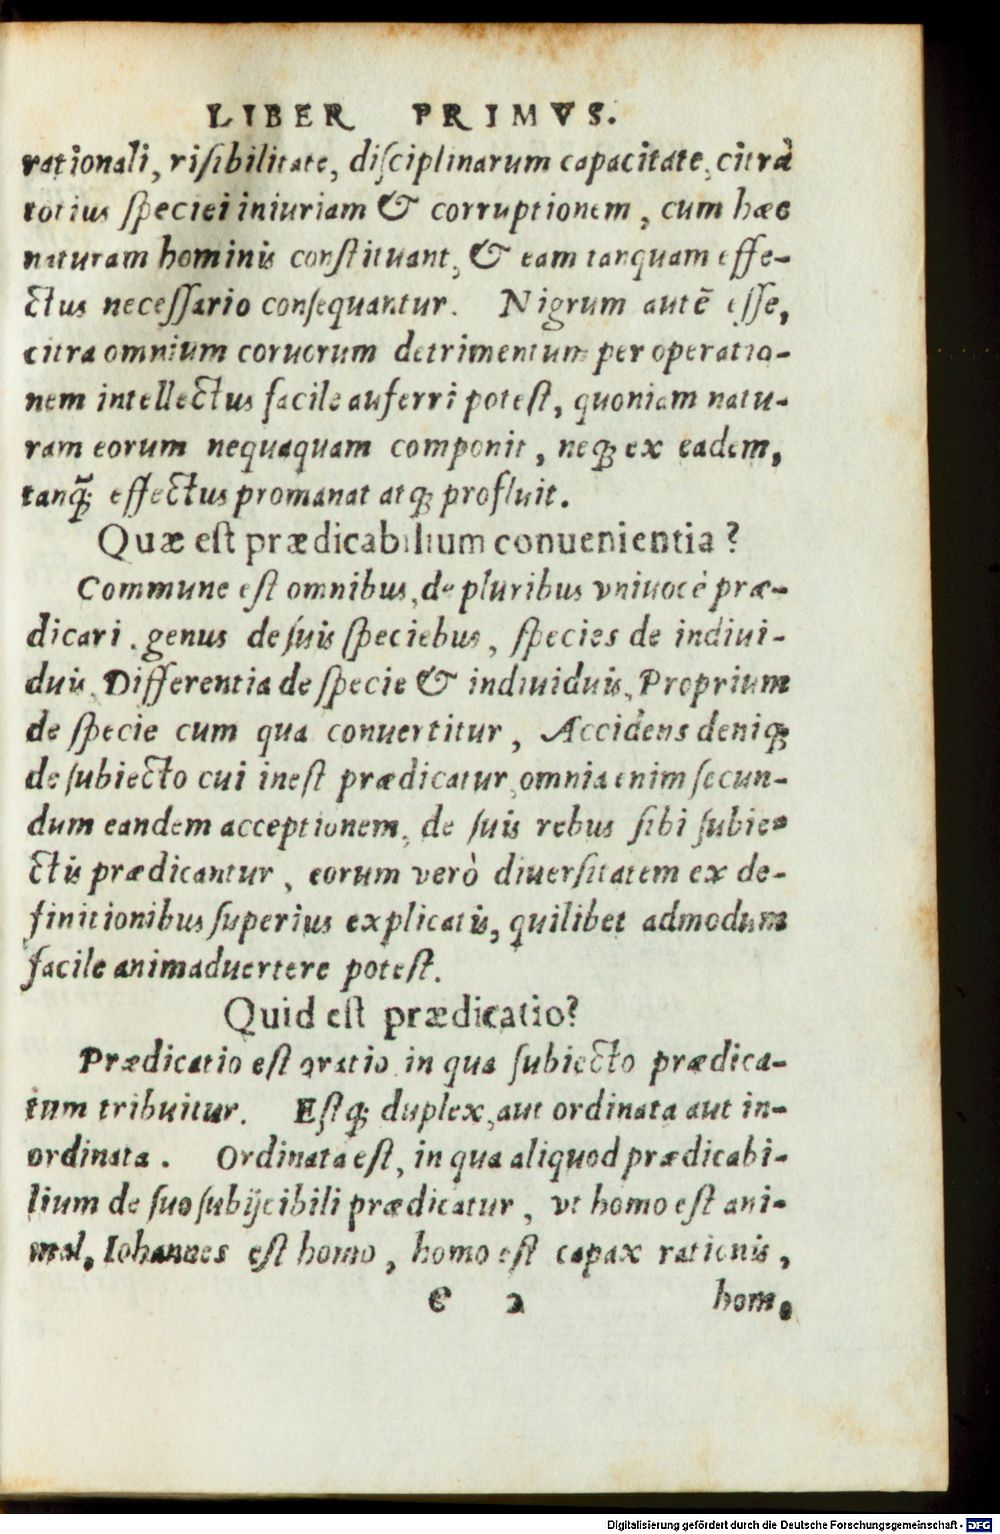 LIBER PRIMVS.
rationali, risibilitate, disciplinarum capacitate, citrà
totius speciei iniuriam & corruptionem, cum hæc
naturam hominis constituant, & eam tanquam effe-
ctus necessario consequantur. Nigrum autē esse,
citra omnium coruorum detrimentum per operatio-
nem intellectus facile auferri potest, quoniam natu-
ram eorum nequaquam componit, neq; ex eadem,
tanq̃; effectus promanat atq; profluit.
Quæ est prædicabilium conuenientia?
Commune est omnibus, de pluribus vniuocè præ-
dicari. genus de suis speciebus, species de indiui-
duis, Differentia de specie & indiuiduis, Proprium
de specie cum qua conuertitur, Accidens deniq;
de subiecto cui inest prædicatur, omnia enim secun-
dum eandem acceptionem, de suis rebus sibi subie-
ctis prædicantur, eorum verò diuersitatem ex de-
finitionibus superius explicatis, quilibet admodum
facile animaduertere potest.
Quid est prædicatio?
Prædicatio est oratio in qua subiecto prædica-
tum tribuitur. Estq; duplex, aut ordinata aut in-
ordinata. Ordinata est, in qua aliquod prædicabi-
lium de suo subijcibili prædicatur, vt homo est ani-
mal, Iohannes est homo, homo est capax rationis,
e 2 hom,
Digitalisierung gefördert durch die Deutsche Forschungsgemeinschaft - DFG